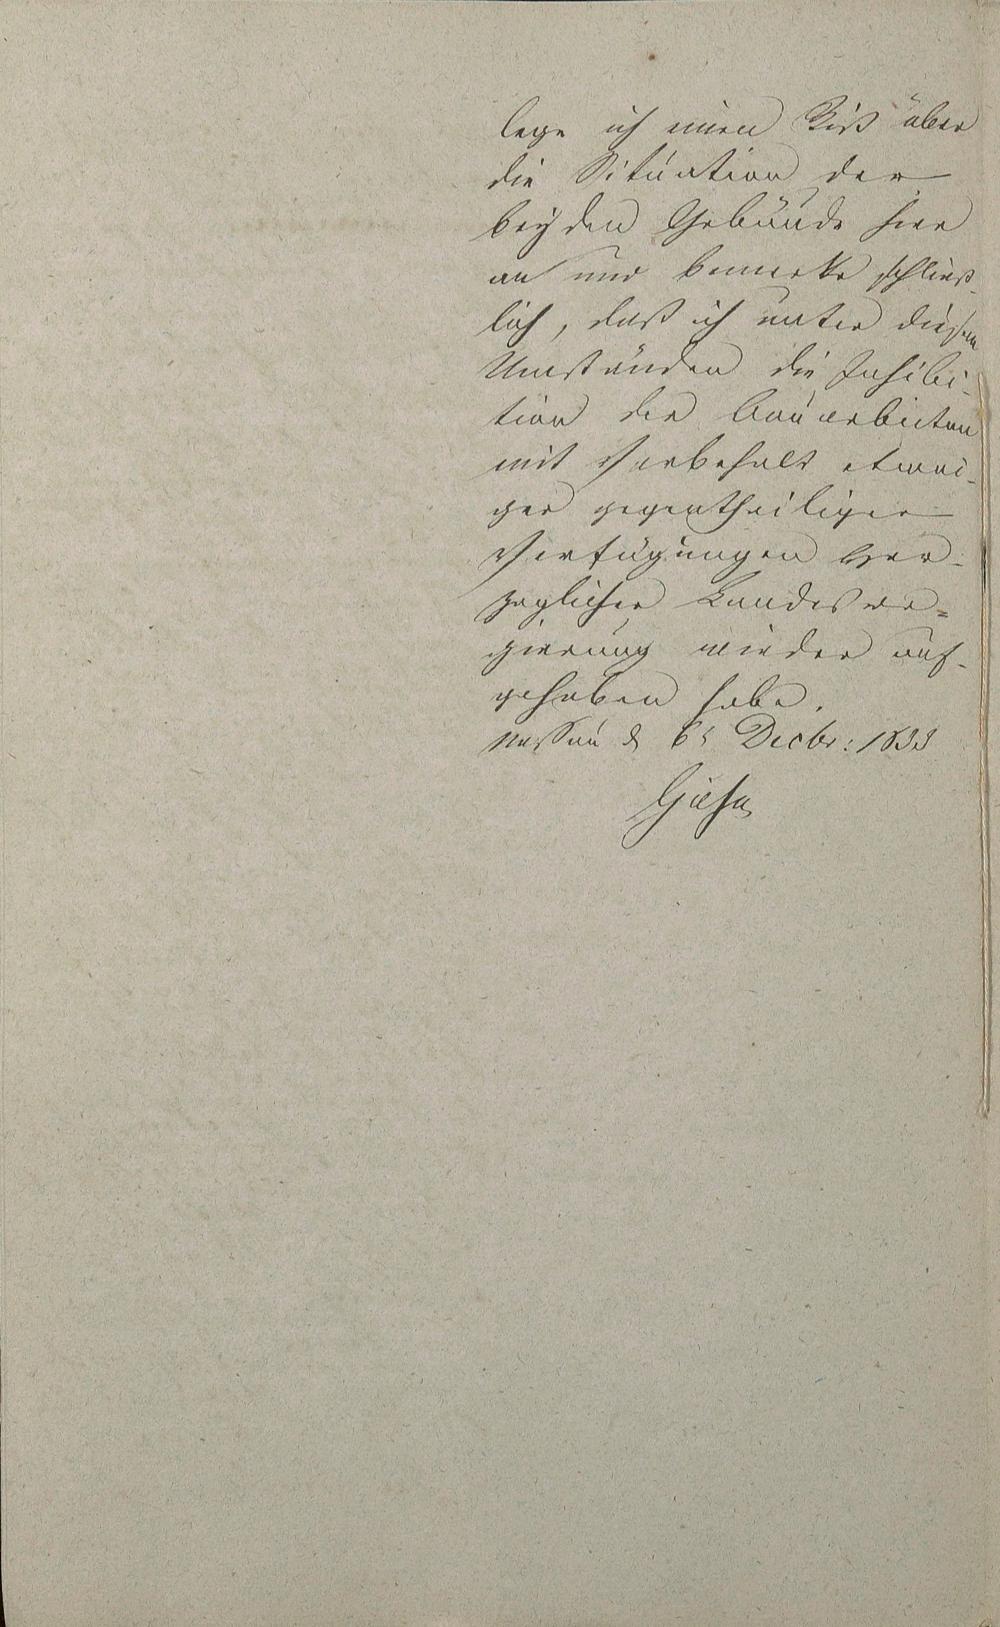 lege ich einen Riß über
die Situation der
beyden Gebäude hier
an und bemerke schließ-
lich, daß ich unter diesen
Umständen die Inhibi-
tion der Bauarbeiten
mit Vorbehalt etwai-
ger gegentheiliger
Verfügungen Her-
zoglicher Landesre-
gierung wieder auf-
gehoben habe.
Nassau d 6t Decbr: 1833